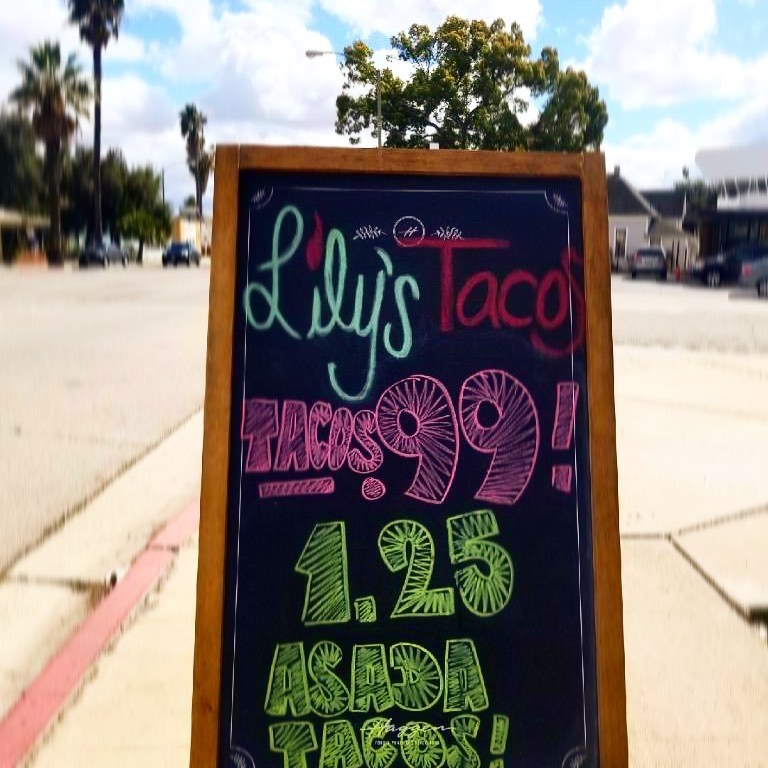 H
Lily's Tacos
TACOS .99!
1.25
ASADA
TACOS!
Haggen